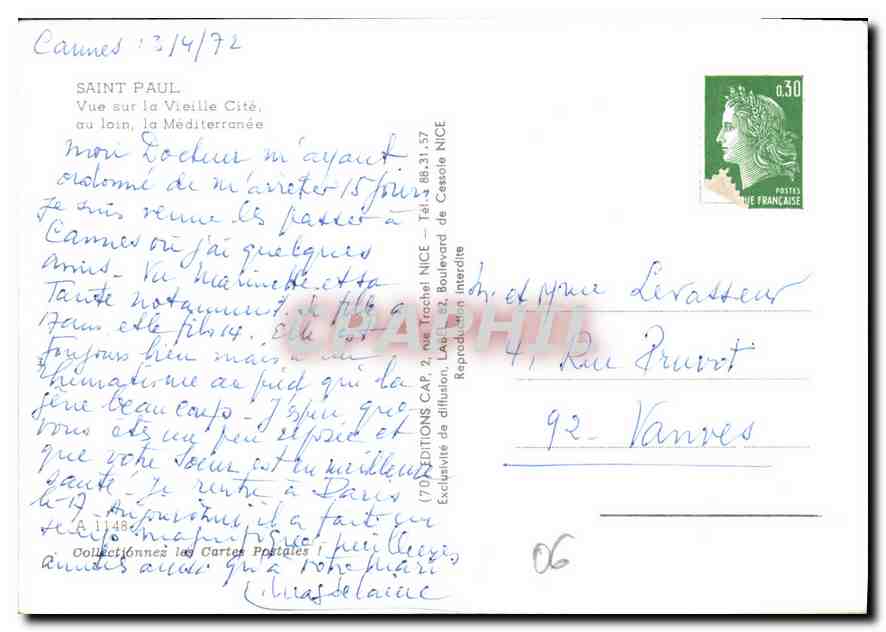 Cannes 13/4/72
SAINT PAUL
Vue sur la Vieille Cité,
au loin, la Méditerranée
Mon Docteur m'ayant
ordonné de m'arrêter 15 jours
je suis venue les passer à
Cannes où j'ai quelques
amis - Vu Marinette et sa
Tante notamment. la fille a
17 ans et le fils 14. Elle est
toujours bien mais a un
rhumatisme au pied qui la
gêne beaucoup - J'espère que
vous êtes un peu reposée et
que votre Soeur est en meilleure
santé. Je rentre à Paris
le 17 - Aujourd'hui il a fait un
temps magnifique, meilleures
amitiés aussi qu'à votre mari
A 1148
Collectionnez les Cartes Postales !
(70) EDITIONS CAP, 2, rue Trachel NICE - Tél. : 88.31.57
Exclusivité de diffusion, 82, Boulevard de Cessole NICE
Reproduction interdite
CPAPHIL
0,30
POSTES
QUE FRANÇAISE
Mr et Mme Levasseur
41 Rue Pruvot
92 - Vanves
06